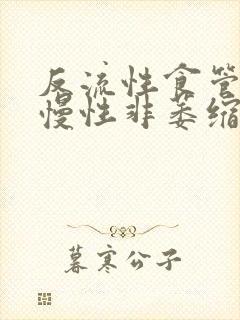 反流性食管
慢性非萎缩
暮寒公子